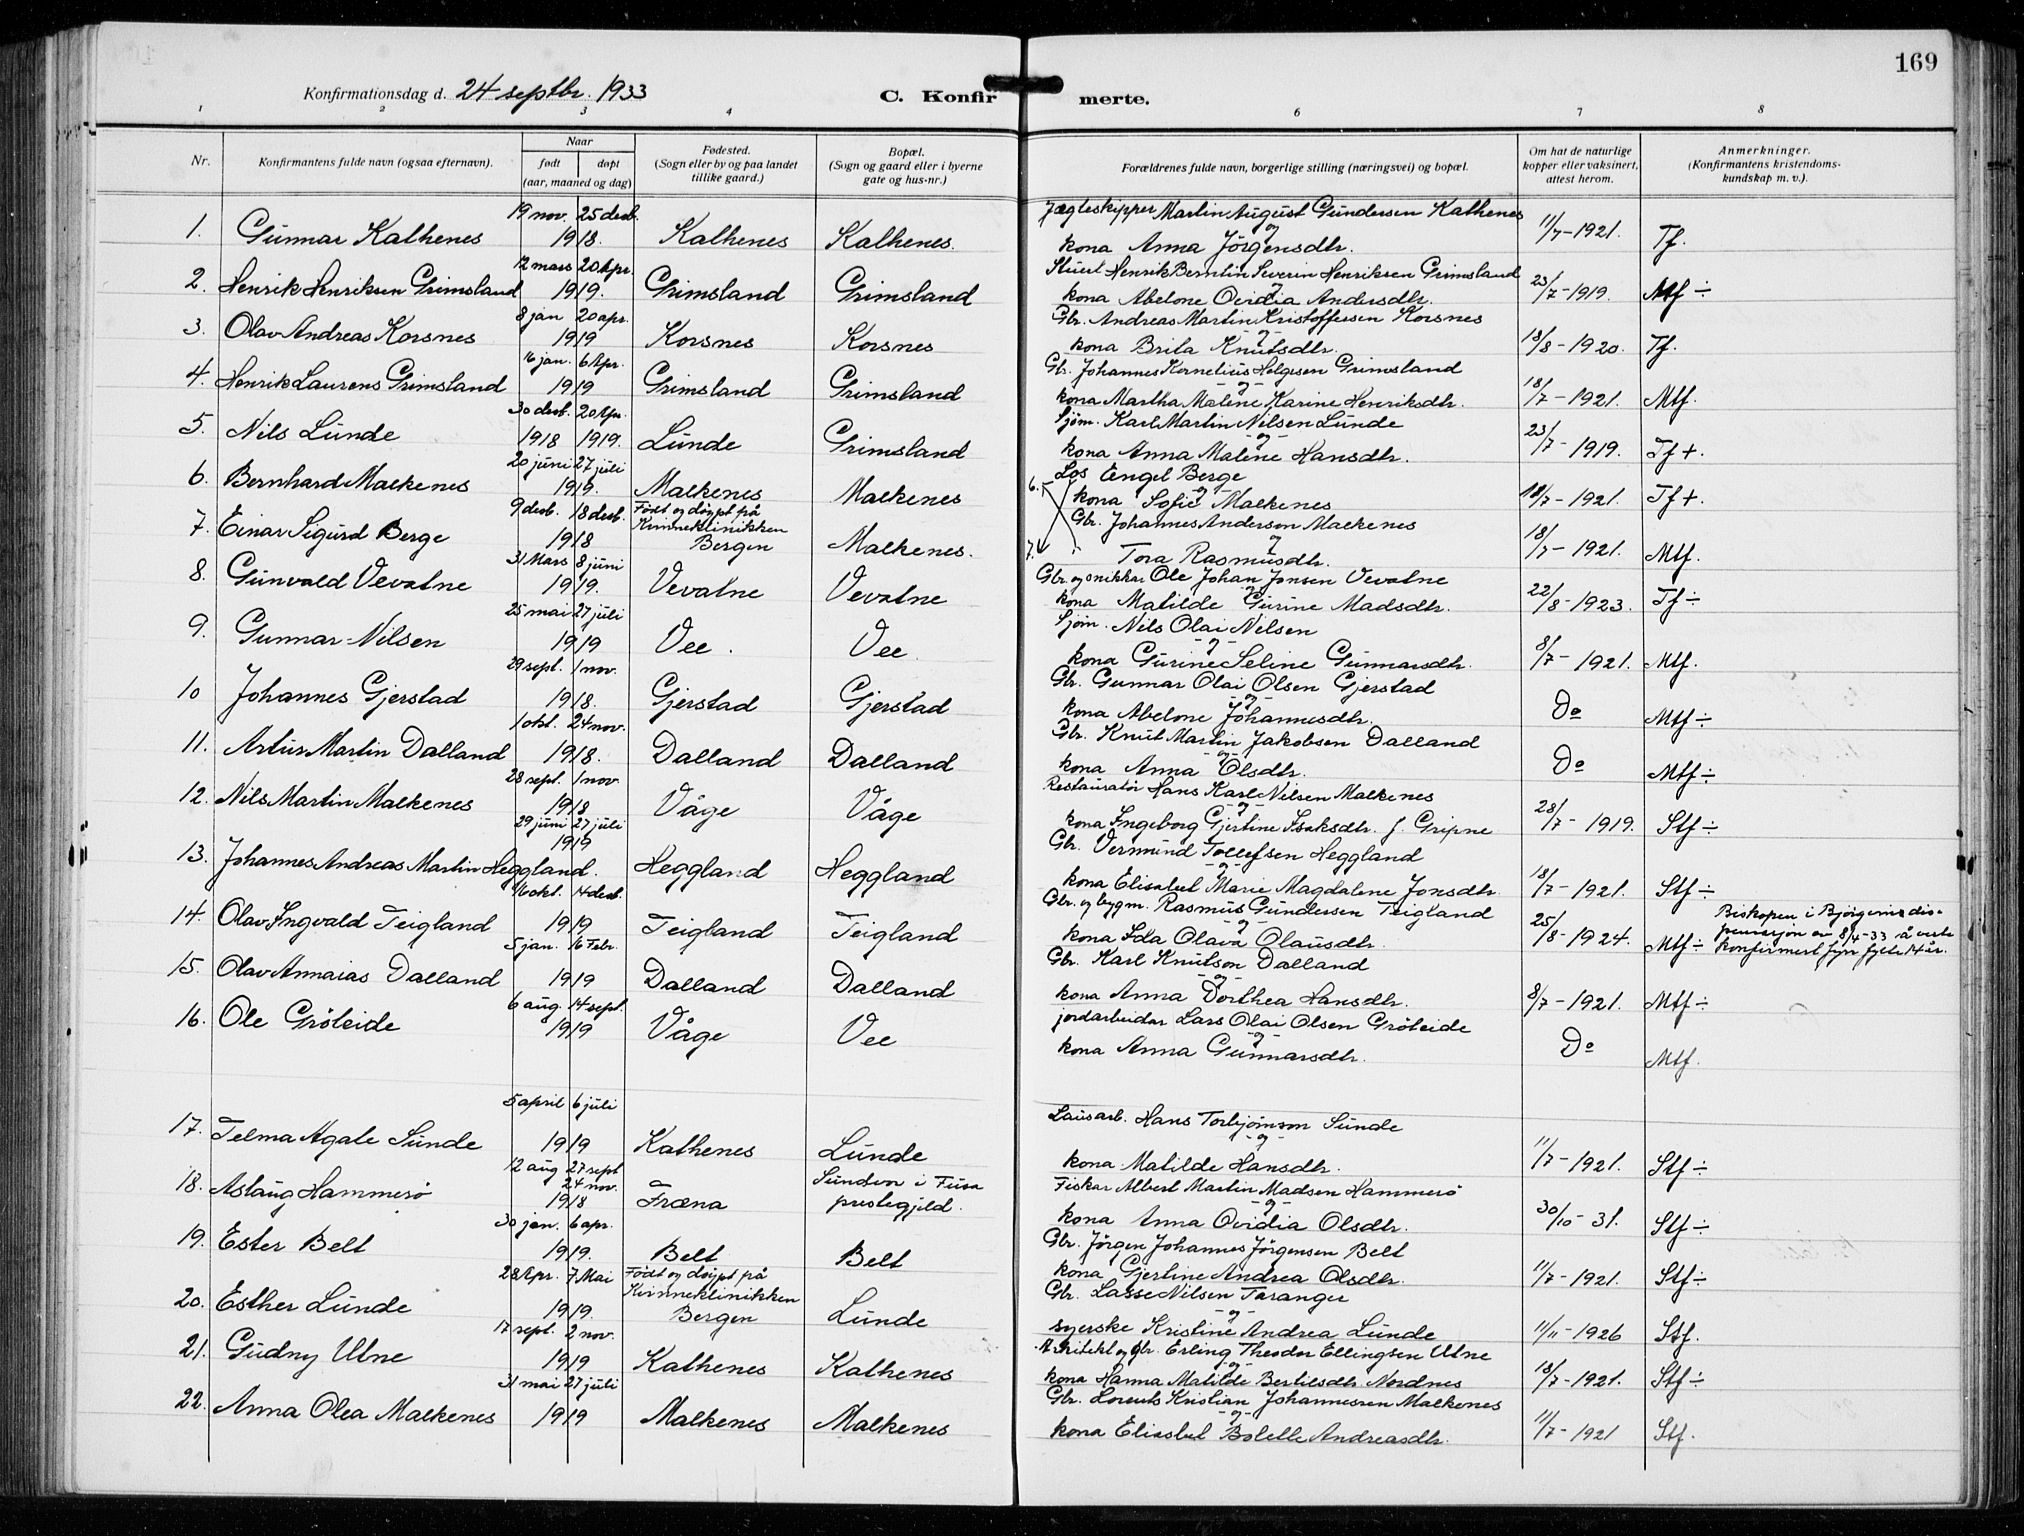 169
Konfirmationsdag d. 24 septbr. 1933
C. Konfirmerte.
1 2 3 4 6 7 8
Nr.
Konfirmantens fulde navn (ogsaa efternavn).
Naar
født døpt
(aar, maaned og dag)
Fødested.
(Sogn eller by og paa landet
tillike gaard.)
Bopæl.
(Sogn og gaard eller i byerne
gate og hus-nr.)
Forældrenes fulde navn, borgerlige stilling (næringsvei) og bopæl.
Om hat de naturlige
kopper eller vaksinert,
attest herom.
Anmerkninger.
(Konfirmantens kristendoms-
kundskap m. v.).
19 nov. 25 desb. Jægteskipper Martin August Gundersen Kalhenes
1. Gunnar Kalhenes 1918. Kalhenes Kalhenes. og kona Anna Jörgensdtr. 11/7-1921. Tf.
12 mars 20 Apr. Stuert Henrik Berntin Severin Henriksen Grimsland
2. Henrik Henriksen Grimsland 1919. Grimsland Grimsland kona Abelone Ovidia Andersdtr. 23/7-1919. Mtf ÷
8 jan 20 apr. Gbr. Andreas Martin Kristoffersen Korsnes
3. Olav Andreas Korsnes 1919 Korsnes Korsnes -og- kona Brita Knutsdtr. 18/8-1920. Tf.
16 jan. 6 Apr. Gbr. Johannes Kornelius Helgesen Grimsland
4. Henrik Laurens Grimsland 1919 Grimsland Grimsland -og- kona Martha Malene Karine Henriksdtr. 18/7-1921. Mtf.
30 desb. 20 Apr. Sjöm. Karl Martin Nilsen Lunde
5. Nils Lunde 1918 1919. Lunde Grimsland -og- kona Anna Malene Hansdtr. 23/7-1919. Tf +.
20 juni 27 juli 6. Los Engel Berge
6. Bernhard Malkenes 1919. Malkenes Malkenes -og- kona Sofie Malkenes 18/7-1921. Tf +
9 desb. 18 desb. Födt og döypt på Gbr. Johannes Anderson Malkenes
Kvinneklinikken
7. Einar Sigurd Berge 1918 Bergen Malkenes. 7. og Tora Rasmusdtr. 18/7-1921. Mtf.
31 Mars 8 juni Gbr. og snikkar Ole Johan Jonsen Vevatne
8. Gunvald Vevatne 1919. Vevatne Vevatne og kona Matilde Gurine Madsdtr. 22/8-1923. Tf ÷
25 mai 27 juli Sjöm. Nils Olai Nilsen
9. Gunnar Nilsen 1919 Vee. Vee -og- kona Gurine Seline Gunnarsdtr. 8/7-1921. Mtf.
29 sept. 1 nov. Gbr. Gunnar Olai Olsen Gjerstad
10 Johannes Gjerstad 1918. Gjerstad Gjerstad -og- kona Abelone Johannesdtr. Do Mtf ÷
1 okt. 24 nov. Gbr. Knut Martin Jakobsen Dalland
11. Artur Martin Dalland 1918. Dalland Dalland -og- kona Anna Olsdtr. Do Mtf ÷
28 sept. 1 nov. Restauratör Hans Karl Nilsen Malkenes
12. Nils Martin Malkenes 1918 Våge Våge -og- kona Ingeborg Gjertine Isaksdtr. f. Gripne 28/7-1919. Stf ÷
29 juni 27 juli Gbr. Vermund Tollefsen Heggland
1919
13. Johannes Andreas Martin Heggland. Heggland Heggland -og- kona Elisabet Marie Magdalene Jonsdtr. 18/7-1921. Stf ÷
16 okt. 14 desb. Gbr. og bygm. Rasmus Gundersen Teigland
14. Olav Ingvald Teigland 1919 Teigland Teigland -og- kona Ida Olava Olausdtr. 25/8-1924. Mtf ÷ Biskopen i Björgvin dis-
pensasjon av 8/4-33 å verte
konfirmert fyrr fylte 14 år.
5 jan. 16 Febr. Gbr. Karl Knutson Dalland
15. Olav Annaias Dalland 1919 Dalland Dalland -og- kona Anna Dorthea Hansdtr. 8/7-1921. Mtf ÷
6 aug. 14 sept. jordarbeidar Lars Olai Olsen Gröteide
16. Ole Gröteide 1919 Våge Vee -og- kona Anna Gunnarsdtr. Do Mtf.
5 april 6 juli Lausarb. Hans Torbjörnson Sunde
17. Telma Agate Sunde 1919 Kalhenes Lunde -og- kona Matilde Hansdtr. 11/7-1921. Stf ÷
12 aug 27 sept Sundvor i Fusa Fiskar Albert Martin Madsen Hammerö
24 nov.
18. Aslaug Hammerö 1918 Fræna prestegjeld. -og- kona Anna Ovidia Olsdtr. 30/10-31. Stf ÷
30 jan. 6 apr. Gbr. Jörgen Johannes Jörgensen Belt
19. Ester Belt 1919. Belt Belt kona Gjertine Andrea Olsdtr. 11/7-1921. Stf ÷
28 Apr. 7 Mai Födt og döypt på Gbr. Lasse Nilsen Taranger
Kvinneklinikken
20. Esther Lunde 1919. Bergen Lunde -og- syerske Kristine Andrea Lunde 11/11-1926 Stf.
17 sept. 2 nov. Arkitekt og Gbr. Erling Theodor Ellingsen Utne
21. Gudny Utne 1919 Kalhenes Kalhenes -og- kona Hanna Matilde Bertilsdtr Nordnes 18/7-1921. Stf ÷
31 mai 27 juli Gbr. Lorents Kristian Johannessen Malkenes
22. Anna Olea Malkenes 1919 Malkenes Malkenes -og- kona Elisabet Bolette Andreasdtr. 11/7-1921 Stf.